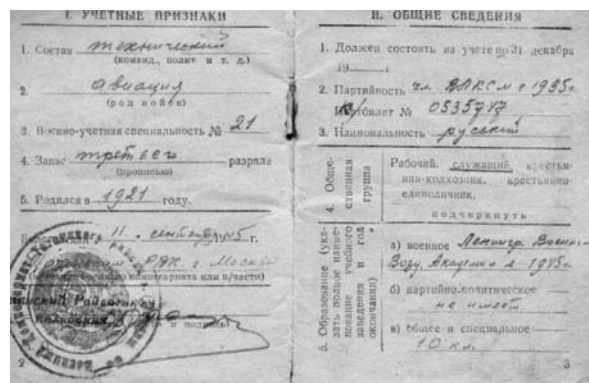 I. УЧЕТНЫЕ ПРИЗНАКИ
1. Состав технический
(команд., полит и т. д.)
2. авиация
(род войск)
3. Военно-учетная специальность № 21
4. Запас третьего разряда
(прописью)
5. Родился в 1921 году.
11. сентября 45 г.
РВК г. Москвы
(наименование военного комиссариата или в/части)
полковник
и подпись)
2
II. ОБЩИЕ СВЕДЕНИЯ
1. Должен состоять на учете по 31 декабря
19 г
2. Партийность чл. ВЛКСМ с 1935г.
билет № 0535717
3. Национальность русский
4. Обще-
ственная
группа
Рабочий, служащий, крестья-
нин-колхозник, крестьянин-
единоличник.
подчеркнуть
5. Образование (ука-
зать полное наиме-
нование учебного
заведения и год
окончания)
а) военное Ленингр. Военно-
Возд. Академия в 1945г.
б) партийно-политическое
не имеет
в) общее и специальное
10 кл.
3